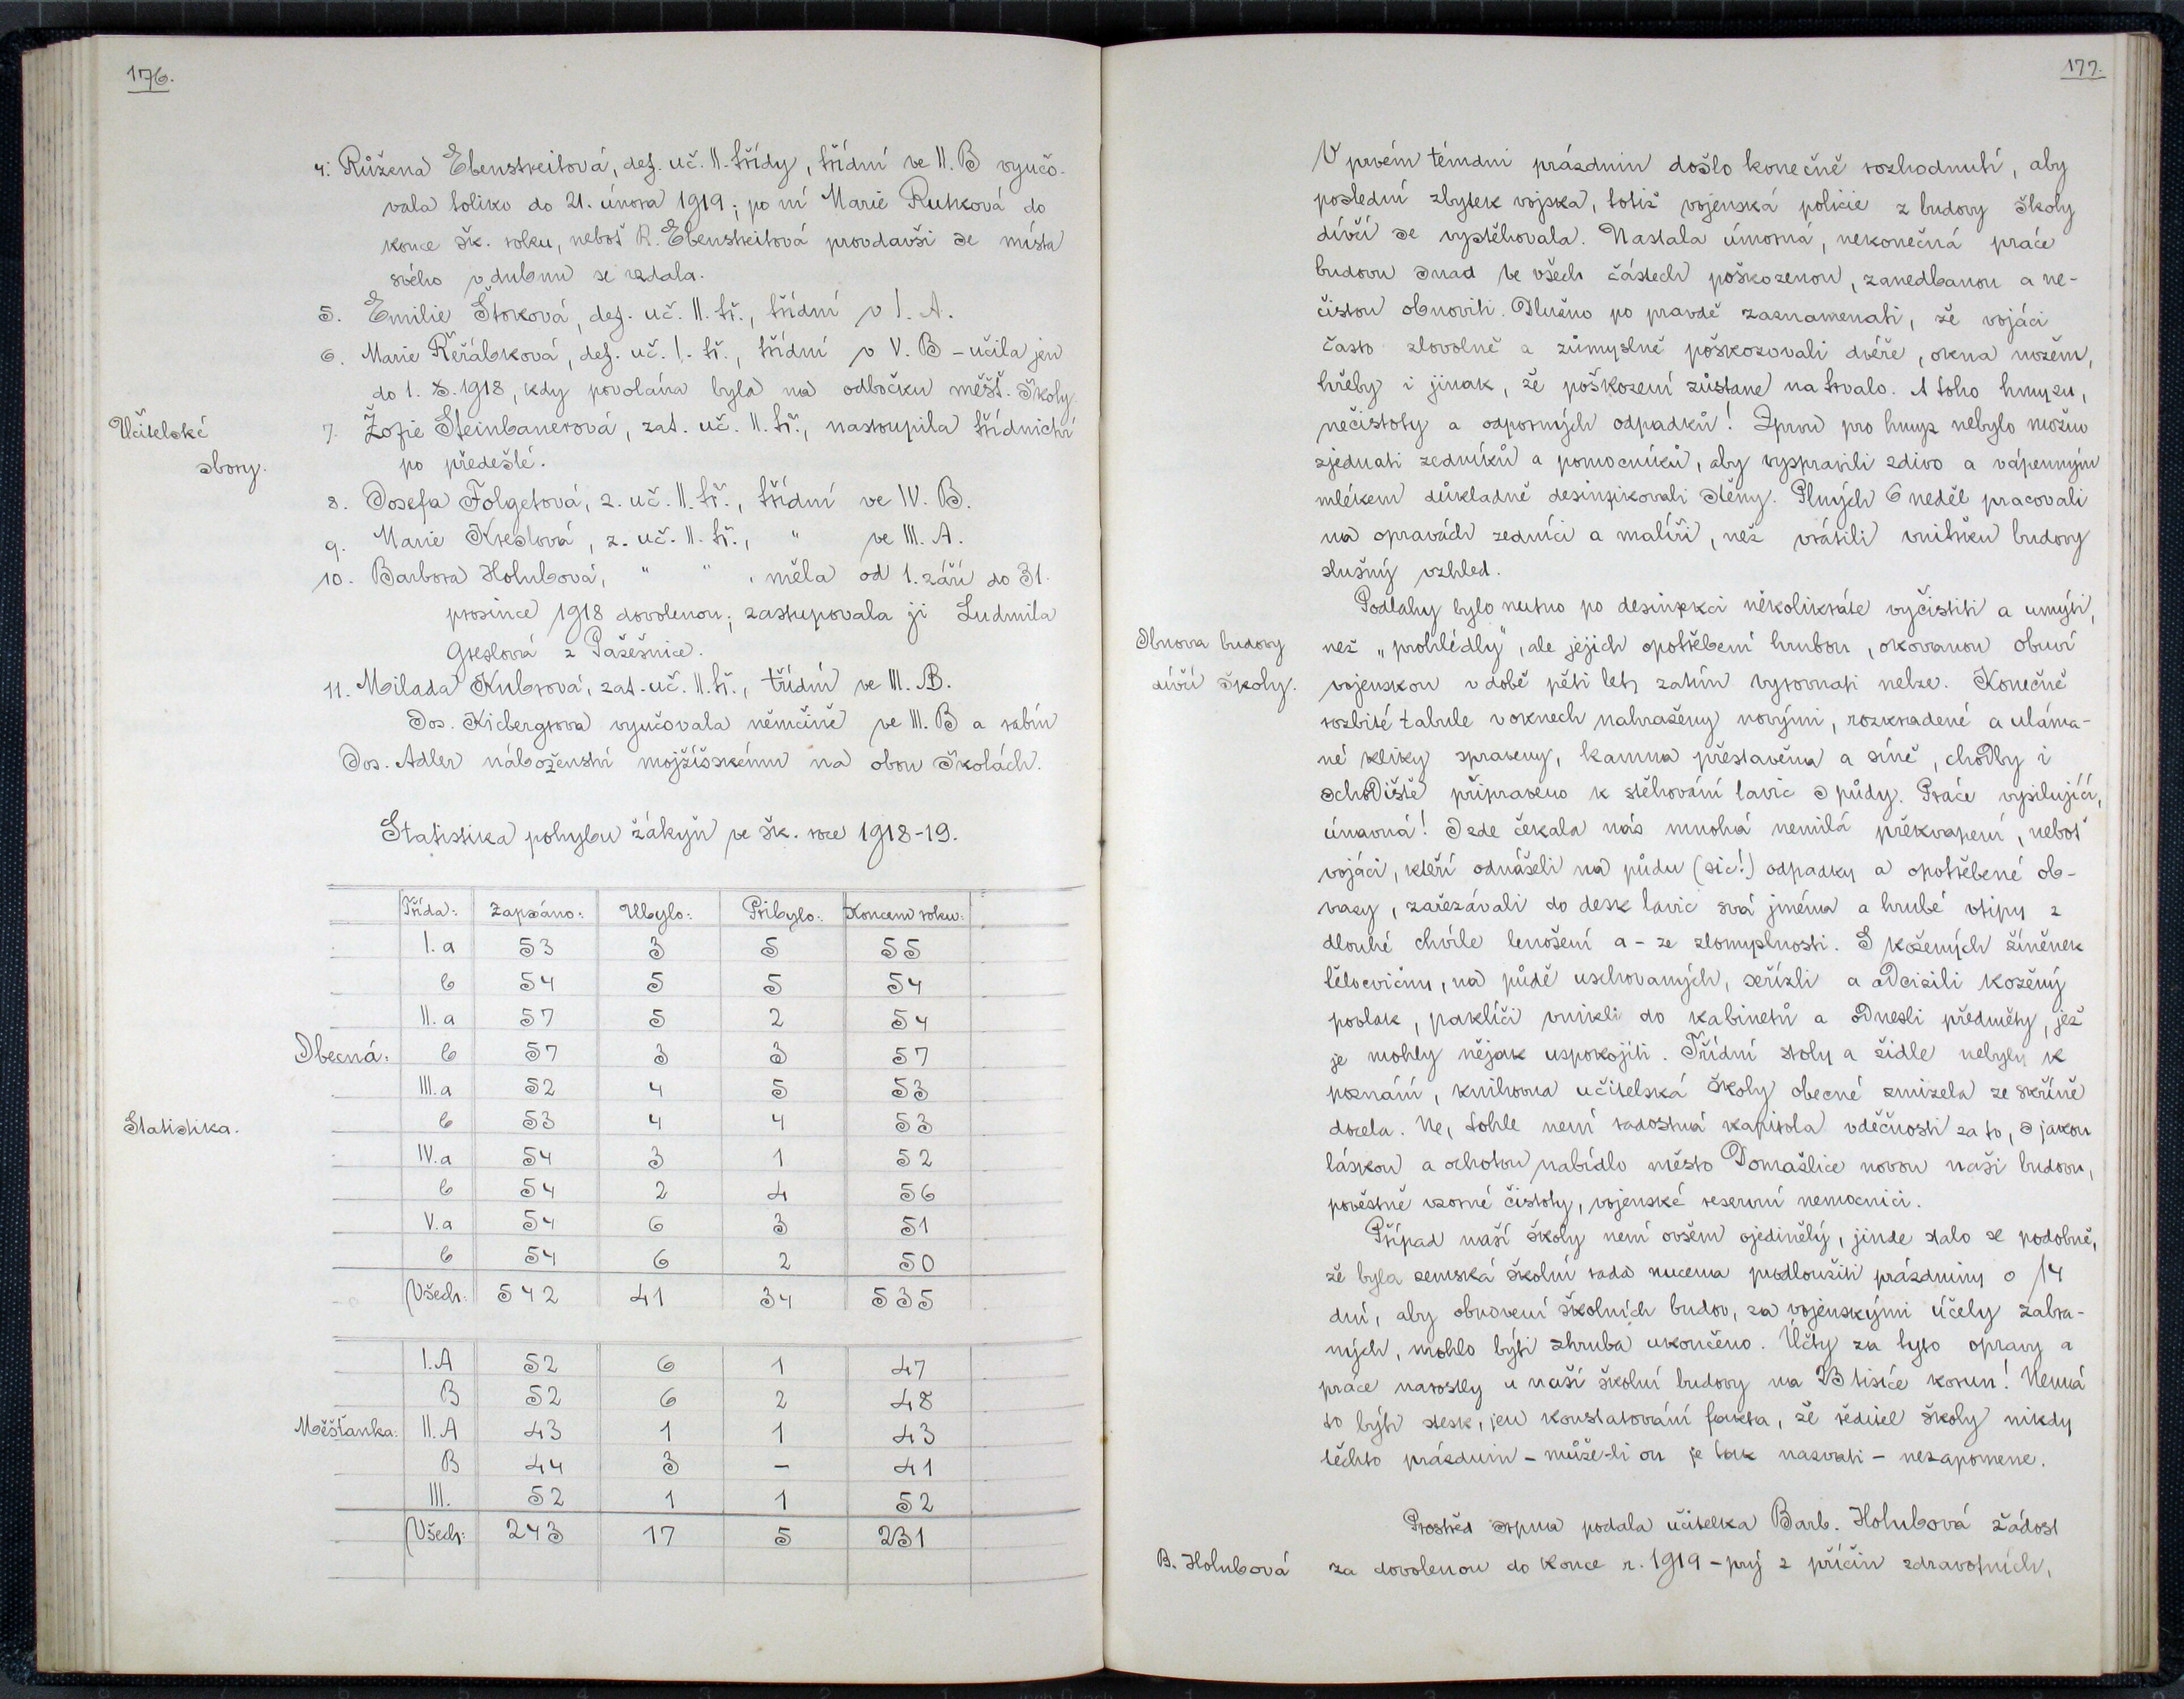 176.
4. Růžena Ebenstreitová, def. uč. II. třídy, třídní ve II. B vyučo-
vala toliko do 21. února 1919; po ní Marie Rutková do
konce šk. roku, neboť R. Ebenstreitová provdavši se místa
svého v dubnu se vzdala.
5. Emilie Štorková, def. uč. II. tř., třídní v I. A.
6. Marie Řeřábková, def. uč. I. tř., třídní v V. B – učila jen
do 1. X. 1918, kdy povolána byla na odbočku měšť. školy.
Učitelské
sbory.
7. Žofie Steinbanerová, zat. uč. II. tř., nastoupila třídnictví
po předešlé.
8. Josefa Folgertová, z. uč. II. tř., třídní ve IV. B.
9. Marie Kreslová, z. uč. II. tř., " ve III. A.
10. Barbora Holubová, " " , měla od 1. září do 31.
prosince 1918 dovolenou; zastupovala ji Ludmila
Greslová z Pašešnice.
11. Milada Kubrová, zat. uč. II. tř., třídní ve III. B.
Jos. Kicbergrova vyučovala němčině ve III. B a rabín
Jos. Adler náboženství mojžíšskému na obou školách.
Statistika pohybu žákyň ve šk. roce 1918-19.
Statistika.
Třída: Zapsáno: Ubylo: Přibylo: Koncem roku:
I. a 53 3 5 55
b 54 5 5 54
II. a 57 5 2 54
Obecná: b 57 3 3 57
III. a 52 4 5 53
b 53 4 4 53
IV. a 54 3 1 52
b 54 2 4 56
V. a 54 6 3 51
b 54 6 2 50
Všech: 542 41 34 535
I. A 52 6 1 47
B 52 6 2 48
Měšťanka: II. A 43 1 1 43
B 44 3 – 41
III. 52 1 1 52
Všech: 243 17 5 231
177.
V prvém témdni prázdnin došlo konečně rozhodnutí, aby
poslední zbytek vojska, totiž vojenská policie z budovy školy
dívčí se vystěhovala. Nastala úmorná, nekonečná práce
budovu snad ve všech částech poškozenou, zanedbanou a ne-
čistou obnoviti. Slušno po pravdě zaznamenati, že vojáci
často zlovolně a zúmyslně poškozovali dvéře, okna nožem,
hřeby i jinak, že poškození zůstane na trvalo. A toho hmyzu,
nečistoty a odporných odpadků! Zprvu pro hmyz nebylo možno
zjednati zedníků a pomocníků, aby vyspravili zdivo a vápenným
mlékem důkladně desinfikovali stěny. Plných 6 neděl pracovali
na opravách zedníci a malíři, než vrátili vnitřku budovy
slušný vzhled.
Obnova budovy
dívčí školy.
Podlahy bylo nutno po desinfekci několikráte vyčistiti a umýti,
než „prohlédly", ale jejich opotřebení hrubou, okovanou obuví
vojenskou v době pěti let, zatím vyrovnati nelze. Konečně
rozbité tabule v oknech nahraženy novými, rozkradené a uláma-
né kliky spraveny, kamna přestavěna a síně, chodby i
schodiště připraveno k stěhování lavic s půdy. Práce vysilující,
únavná! I zde čekala nás mnohá nemilá překvapení, neboť
vojáci, kteří odnášeli na půdu (sic!) odpadky a opotřebené ob-
vazy, zařezávali do desk lavic svá jména a hrubé vtipy z
dlouhé chvíle lenošení a – ze zlomyslnosti. S kožených žíněnek
tělocvičny, na půdě uschovaných, seřízli a odcizili kožený
povlak, paklíči vnikli do kabinetů a odnesli předměty, jež
je mohly nějak uspokojiti. Třídní stoly a židle nebyly k
poznání, knihovna učitelská školy obecné zmizela ze skříně
docela. Ne, tohle není radostná kapitola vděčnosti za to, s jakou
láskou a ochotou nabídlo město Domažlice novou naši budovu,
pověstně vzorné čistoty, vojenské reservní nemocnici.
Případ naší školy není ovšem ojedinělý, jinde stalo se podobně,
že byla zemská školní rada nucena prodloužiti prázdniny o 14
dní, aby obnovení školních budov, za vojenskými účely zabra-
ných, mohlo býti zhruba ukončeno. Účty za tyto opravy a
práce narostly u naší školní budovy na 23 tisíce korun! Nemá
to býti stesk, jen konstatování fakta, že ředitel školy nikdy
těchto prázdnin – může-li on je tak nazvati – nezapomene.
Prostřed srpna podala učitelka Barb. Holubová žádost
B. Holubová
za dovolenou do konce r. 1919 – prý z příčin zdravotních,